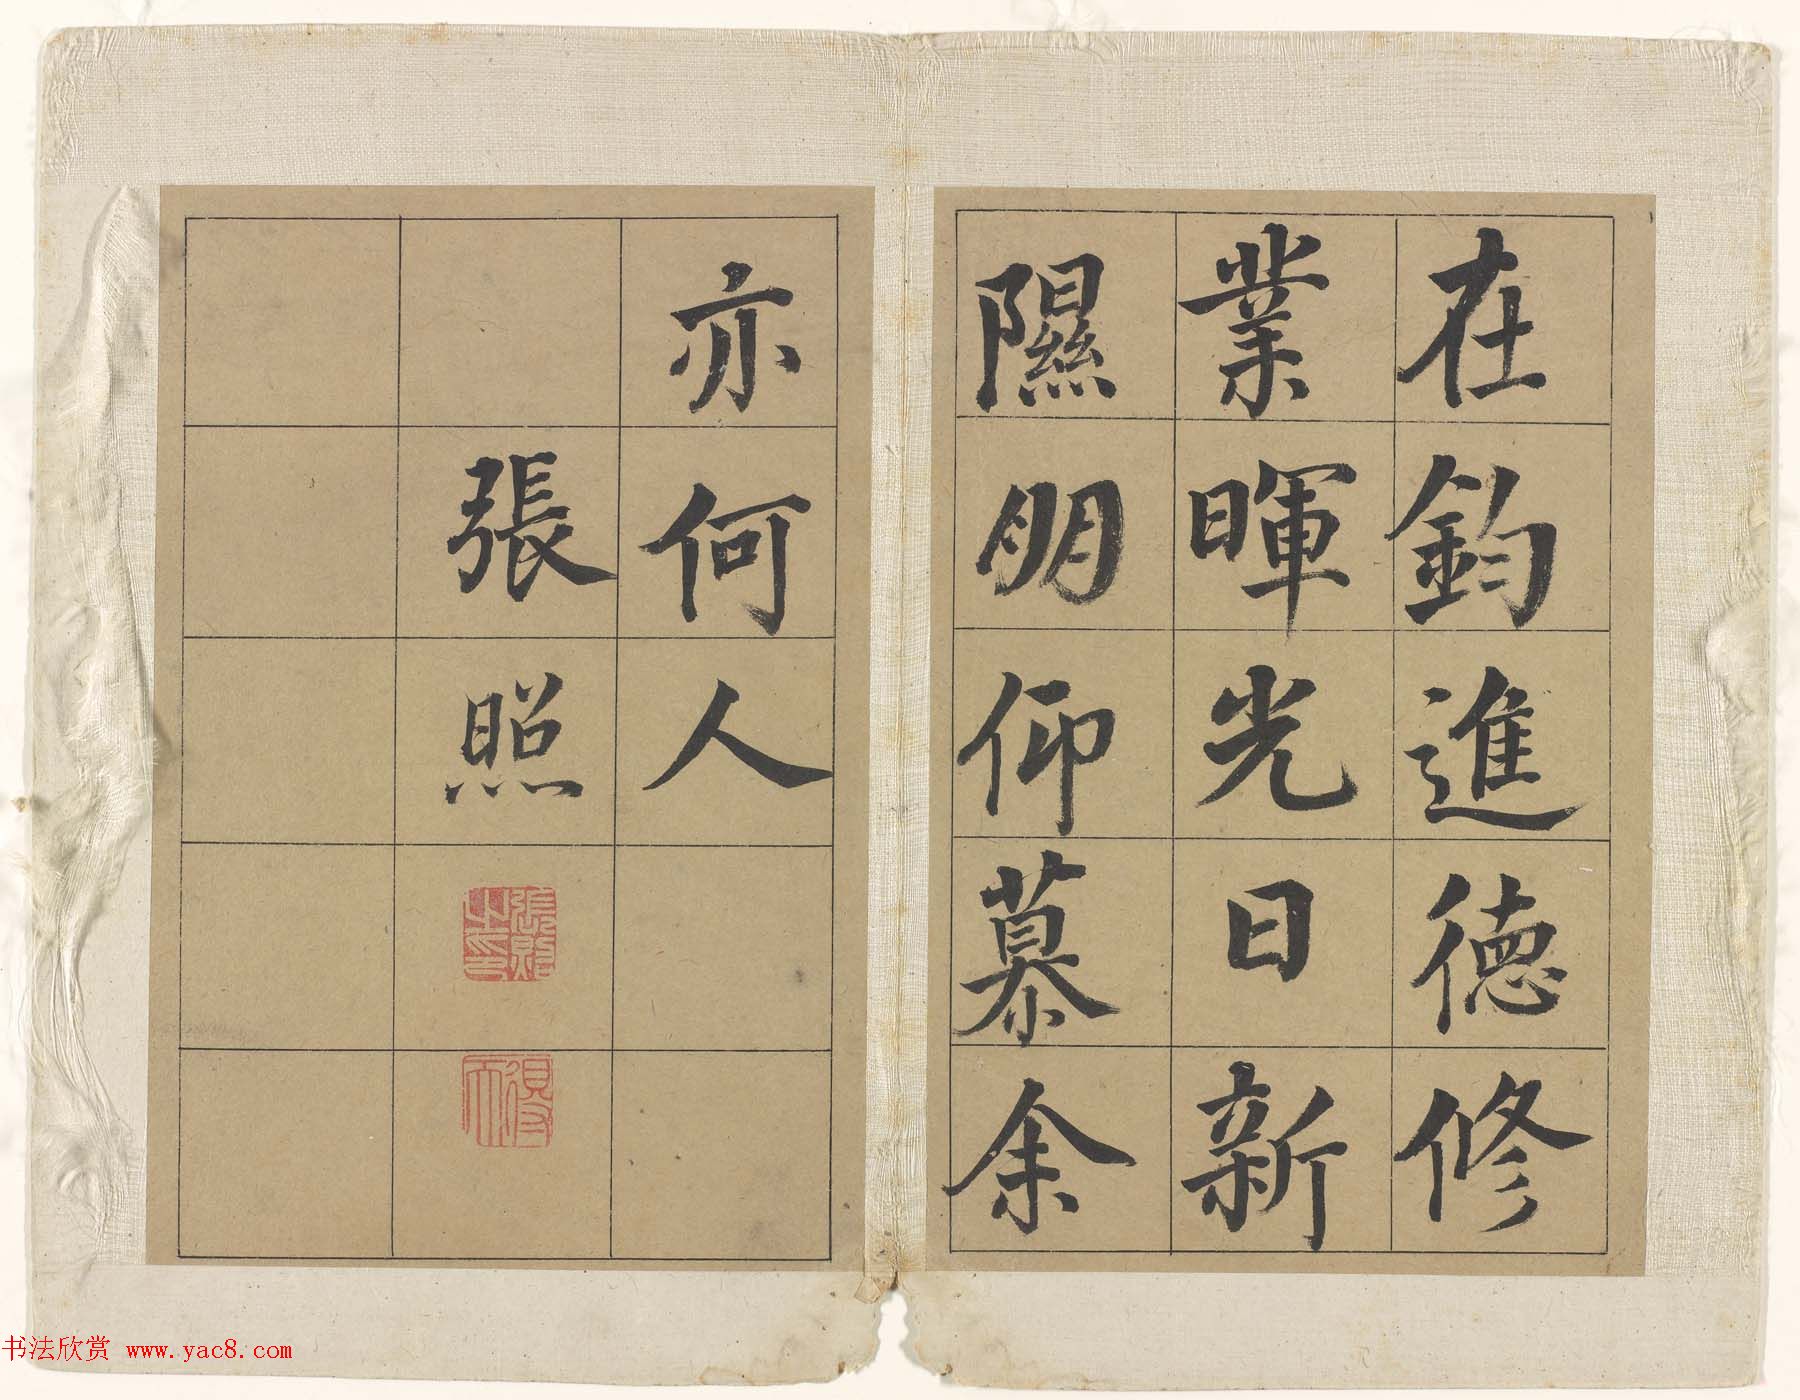 在鈞進德修
業暉光日新
隰朋仰慕余
亦何人
張照
張照之印
得天
书法欣赏 www.yac8.com